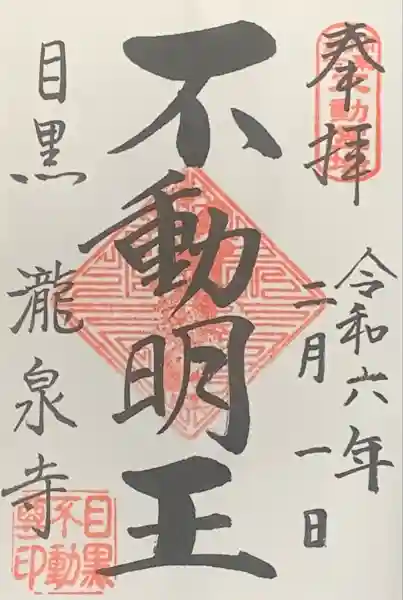 奉拝
令和六年
二月一日
不動明王
目黒
瀧泉寺
目黒
不動
印